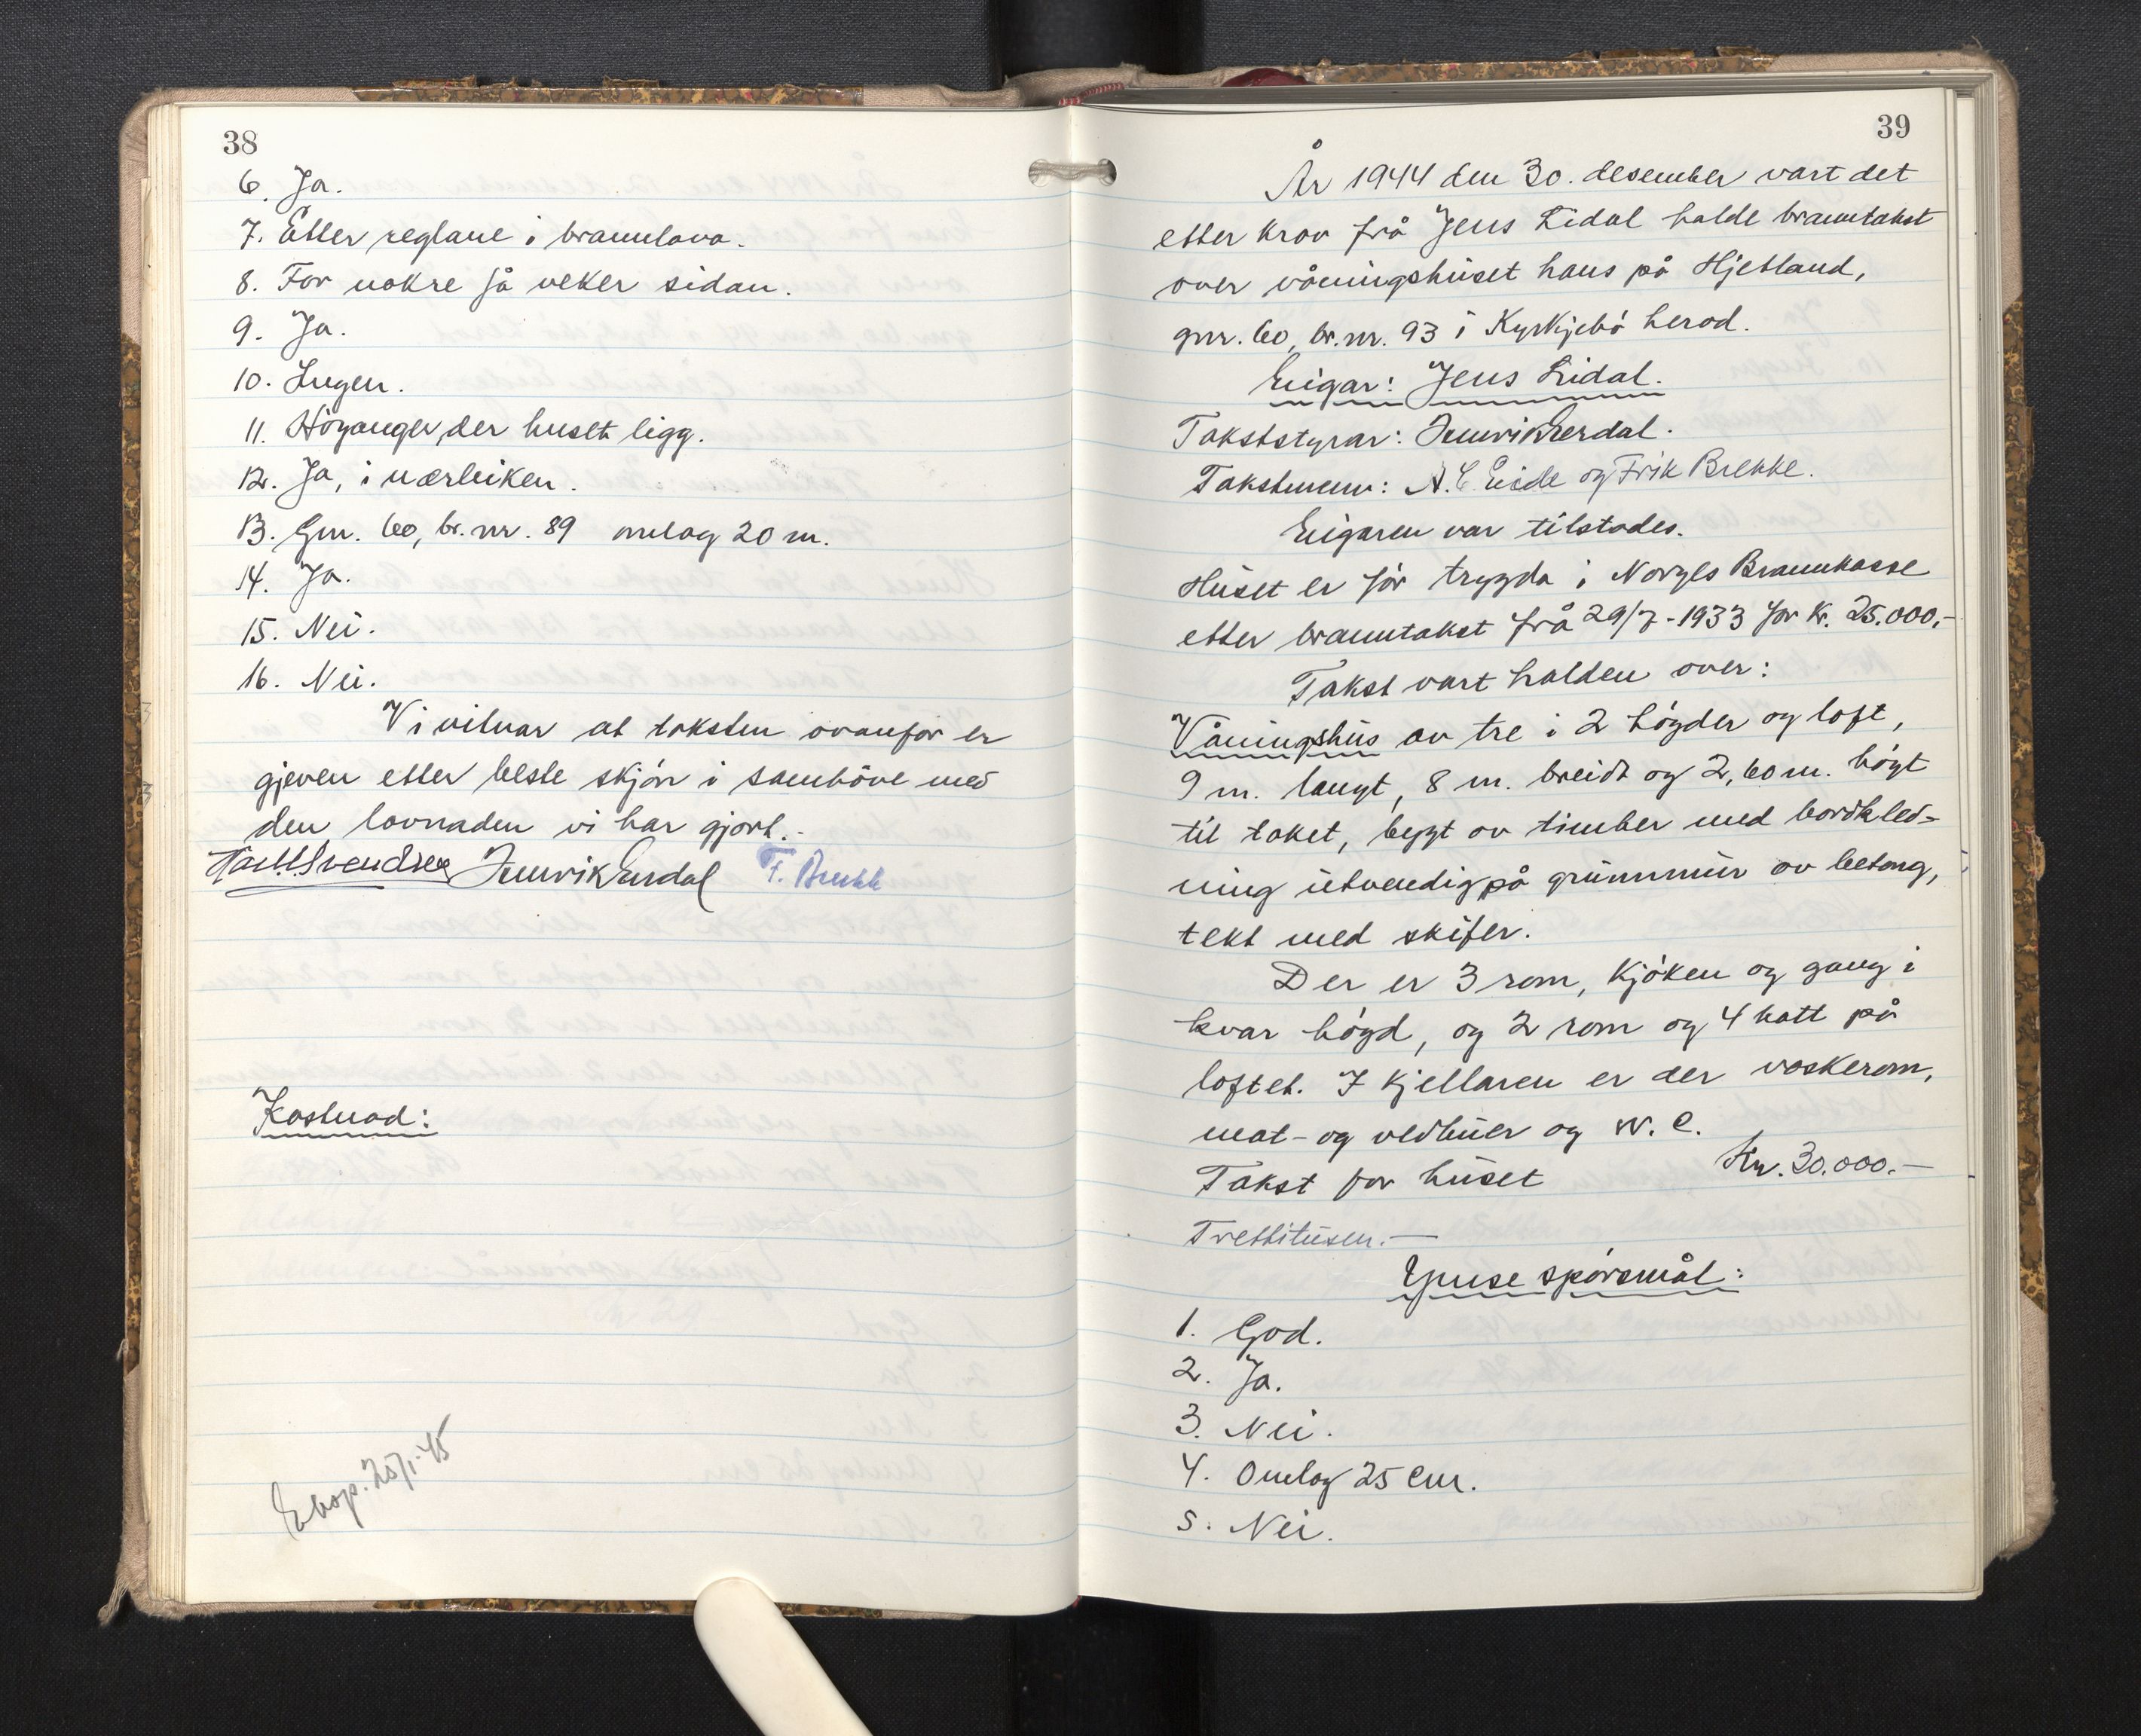 38
6. Ja.
7. Etter reglane i brannlova.
8. For nokre få veker sidan.
9. Ja.
10. Ingen.
11. Höyanger, der huset ligg.
12. Ja, i nærleiken.
13. Gnr. 60, br. nr. 89 omlag 20 m.
14. Ja.
15. Nei.
16. Nei.
Vi vitnar at taksten ovanfor er
gjeven etter beste skjön i samhöve med
den lovnaden vi har gjort.-
Svendsen Henrik Erdal F. Brekk
Kostnad:
25/1-45
39
År 1944 den 30. desember vart det
etter krav frå Jens Lidal halde branntakst
over våningshuset hans på Hjetland,
gnr. 60, br. nr. 93 i Kyrkjebö herad.
Eigar: Jens Lidal.
Takststyrar: Henrik Erdal.
Takstmenn: A. C. Eide og Frik Brekke.
Eigaren var tilstades.
Huset er för trygda i Norges Brannkasse
etter branntakst frå 29/7-1933 for kr. 25.000,-
Takst vart halden over:
Våningshus av tre i 2 högder og loft,
9 m. langt, 8 m. breidt og 2,60 m. högt
til taket, bygt av timber med bordkled-
ning utvendig på grunnmur av betong,
tekt med skifer.
Der er 3 rom, kjöken og gang i
kvar högd, og 2 rom og 4 kott på
loftet. I kjellaren er der vaskerom,
mat- og vedbuer og W. C.
Takst for huset Kr. 30.000.-
Trettitusen.-
Ymse spörsmål:
1. God.
2. Ja.
3. Nei.
4. Omlag 25 cm.
5. Nei.